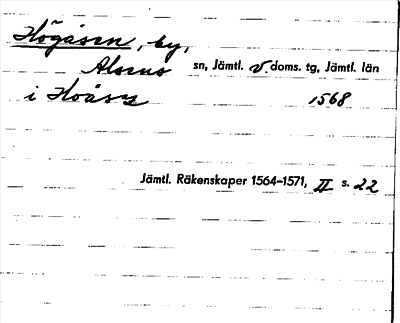 Högåsen, by,
Alsens sn, Jämtl. v. doms. tg, Jämtl. län
i Hoåsen 1568
Jämtl. Räkenskaper 1564-1571, II s. 22